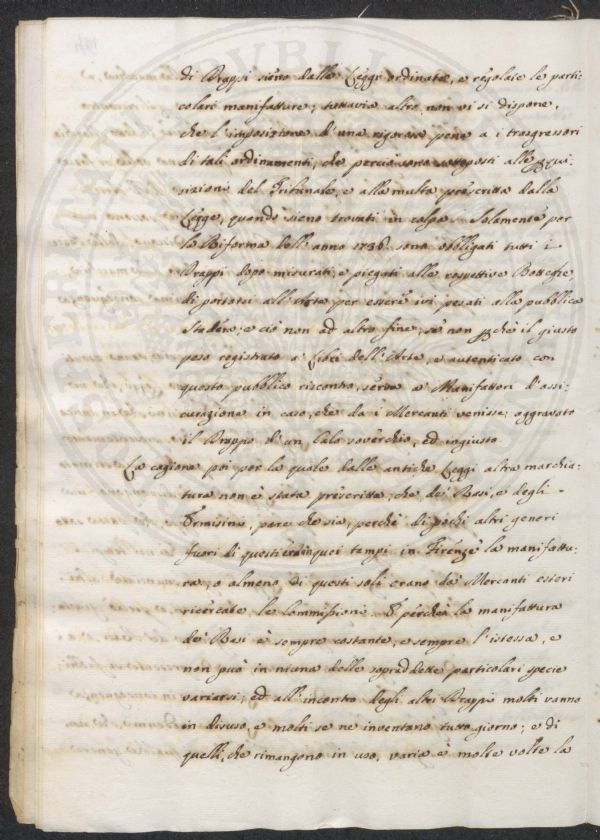 di Drappi sieno dalle Leggi ordinate, e regolate le parti-
colari manifatture; tuttavia altro non vi si dispone,
che l'imposizione d'una rigorosa pena a i trasgressori
di tali ordinamenti, che perciò sono sottoposti alle
sizioni del Tribunale, e alla multa prescritta dalla
Legge, quando sieno trovati in colpa. Solamente per
la Riforma dell'anno 1736. sono obbligati tutti i
Drappi dopo misurati, e piegati alle respettive Botteghe
di portarsi all'Arte per essere ivi pesati alla pubblica
Stadera; e ciò non ad altro fine, se non pchè il giusto
peso registrato a' Libri dell'Arte, e autenticato con
questo pubblico riscontro, serva a' Manifattori d'assi-
curazione in caso, che da i Mercanti venisse aggravato
il Drappo d'un Calo soverchio, ed ingiusto
La cagione poi per la quale dalle antiche Leggi altra marchia-
tura non è stata prescritta, che de' Rasi, e degli
Ermisini, pare che sia, perchè di pochi altri generi
fuori di questi in quei tempi in Firenze la manifattu-
ra, o almeno di questi soli erano da' Mercanti esteri
ricercate le Commissioni. E perchè la manifattura
dei Rasi è sempre costante, e sempre l'istessa, e
non può in niuna delle sopraddette particolari specie
variarsi; ed all'incontro degli altri Drappi molti vanno
in disuso, e molti se ne inventano tutto giorno; e di
quelli, che rimangono in uso, varia è molte volte la